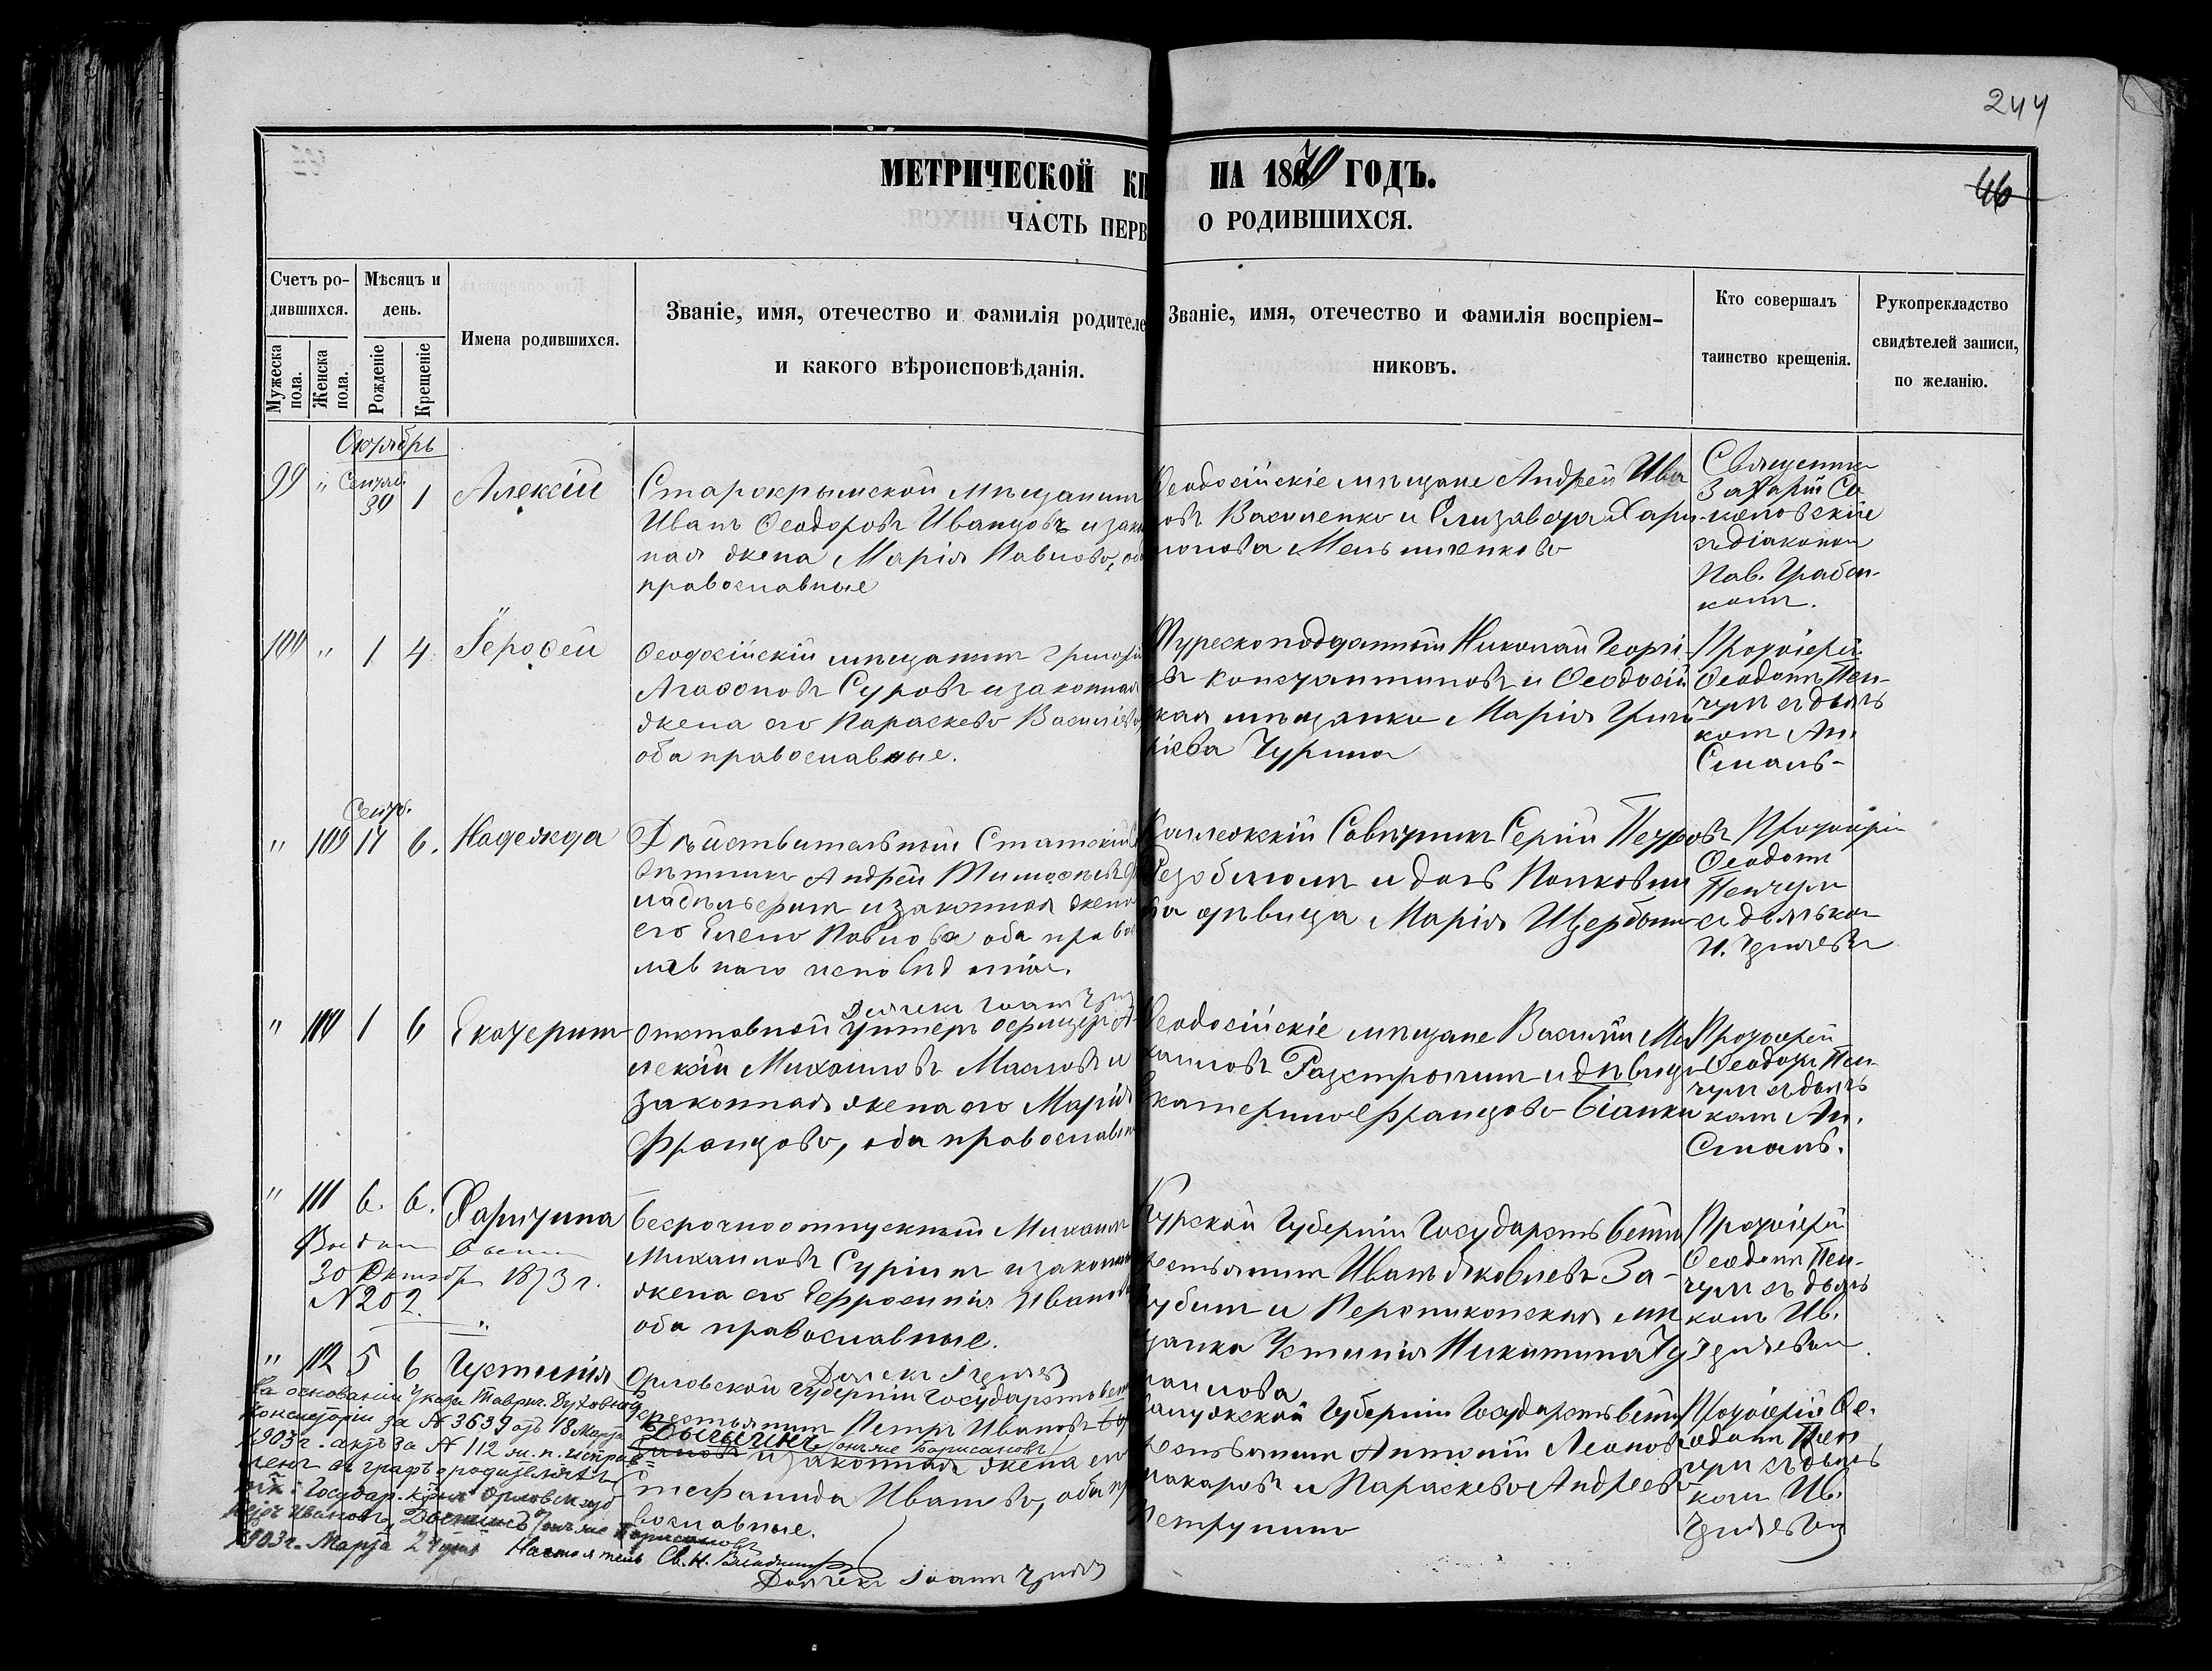 244
46
МЕТРИЧЕСКОЙ КН НА 1870 ГОДЪ.
ЧАСТЬ ПЕРВ О РОДИВШИХСЯ.
Счетъ ро-
дившихся.
Мужеска
пола.
Женска
пола.
Мѣсяцъ и
день.
Рожденіе
Крещеніе
Имена родившихся.
Званіе, имя, отечество и фамилія родителе
и какого вѣроисповѣданія.
Званіе, имя, отечество и фамилія воспріем-
никовъ.
Кто совершалъ
таинство крещенія.
Рукопрекладство
свидѣтелей записи,
по желанію.
Октябрь
99 " Сентяб. 30 1 Алексій
Старокрымской мѣщанинъ
Иванъ Ѳеодоровъ Иванцовъ и зако
ная жена Марія Павлова, об
православные
Ѳеодосійскіе мѣщане Андрей Ива
овъ Василенко и Елизавета Хари
тонова Мельниченкова
Священникъ
Захарій Со
коловскіи
съ діакономъ
Пав. Грабен-
комъ.
100 " 1 4 Іероѳей
Ѳеодосійскій мѣщанинъ Григорі
Агаѳоновъ Суровъ и законная
жена его Параскева Василіева
оба православные.
Турецкоподданный Николай Георгі
въ Константиновъ и Ѳеодосій
кая мѣщанка Марія Григо
ріева Чурина
Протоіерей
Ѳеодотъ Пен-
чулъ съ дьяч
комъ Ан.
Смаль-
Сентб.
" 109 17 6. Надежда
Дѣйствительный Статскій
вѣтникъ Андрей Тимоѳеевъ
и законная жена
его Елена Павлова оба право
лавнаго исповѣданія.
Коллежскій Совѣтникъ Сергій Петровъ
и дочь Полковни
ка дѣвица Марія Щербина
Протоіерей
Ѳеодотъ
Пенчулъ
съ дьячкомъ
И.
" 110 1 6 Екатерина
Дьячекъ Іоаннъ
Отставной Унтеръ офицеръ А
лексій Михаиловъ Масловъ и
законная жена его Марія
Францова, оба православн
Ѳеодосійскіе мѣщане Василій Ми
хаиловъ и дѣвица
Екатерина Францова Біанки
Протоіерей
Ѳеодотъ Пен-
чулъ съ дьяч
комъ Ан.
Смаль.
" 111 6. 6. Харитина
Выдана выпись
30 Октября 1873 г.
N 202.
Безсрочноотпускный Михаилъ
Михаиловъ Суринъ и законная
жена его Ефросинія Иванова
оба православные.
Курской Губерніи Государственн
рестьянинъ Иванъ Яковлевъ За-
убинъ и Перекопская мѣ
щанка Устинія Никитина
Протоіерей
Ѳеодотъ Пен-
чулъ съ дьяч
комъ Ив.
" 112 5 6 Устинія
Дьячекъ І
Орловской Губерніи Государствен
крестьянинъ Петръ Ивановъ
онъ же Барисановъ
и законная жена его
тефанида Иванова, оба пр
вославные.
Калужской Губерніи Государственн
рестьянинъ Антоній Леоновъ
макаровъ и Параскева Андреева
Петрунина
Протоіерей Ѳе-
одотъ Пен
чулъ съ дьяч
комъ Ив.
На основаніи Указа Таврич. Духовной
Консисторіи за N 3639 отъ 18 Марта
1903 г. акт за N 112 ж. п. исправ-
ленъ въ графѣ о родителяхъ
Государ. кр-нъ Орловск. губ
Петръ Ивановъ онъ же Барисановъ
1903 г. Марта 24 дня Настоятель Св. Н. Владимиръ
Дьячекъ Іоаннъ